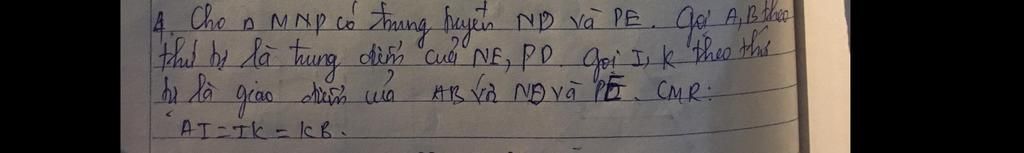 4. Cho Δ MNP có trung tuyến ND và PE. Gọi A, B theo
thứ tự là trung điểm của NE, PD. Gọi I, K theo thứ
tự là giao điểm của AB và ND và PE. CMR:
AI = IK = KB.